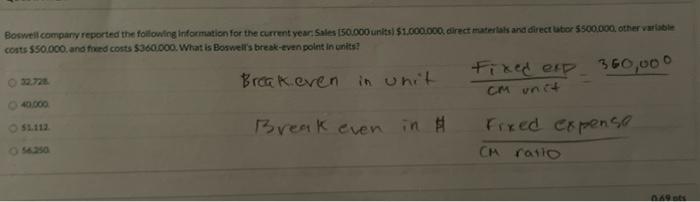 Boswell company reported the following information for the current year: Sales (50,000 units) $1,000,000, direct materials and direct labor $500,000, other variable
costs $50,000, and fixed costs $360,000. What is Boswell's break-even point in units?
32,728.
40,000.
51,112.
56,250.
Break even in unit Fixed exp = 360,000
CM unit
Break even in $ Fixed expense
CM ratio
0.69 pts